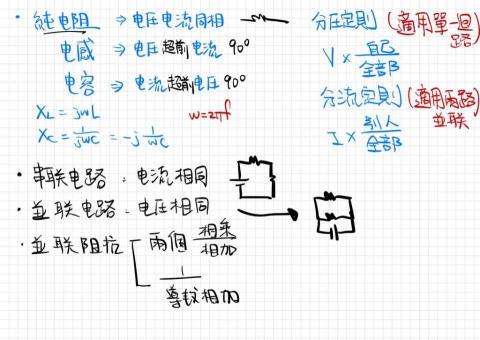 · 純电阻 ⇒ 电压电流同相
电感 ⇒ 电压超前电流 90°
电容 ⇒ 电流超前电压 90°
X_L = jwL
w=2πf
X_C = 1/jwC = -j 1/wC
分压定則 (適用單一回路)
V × 自己/全部
分流定則 (適用兩路並联)
I × 别人/全部
· 串联电路:电流相同
· 並联电路:电压相同
· 並联阻抗
兩個 相乘/相加
1/導數相加